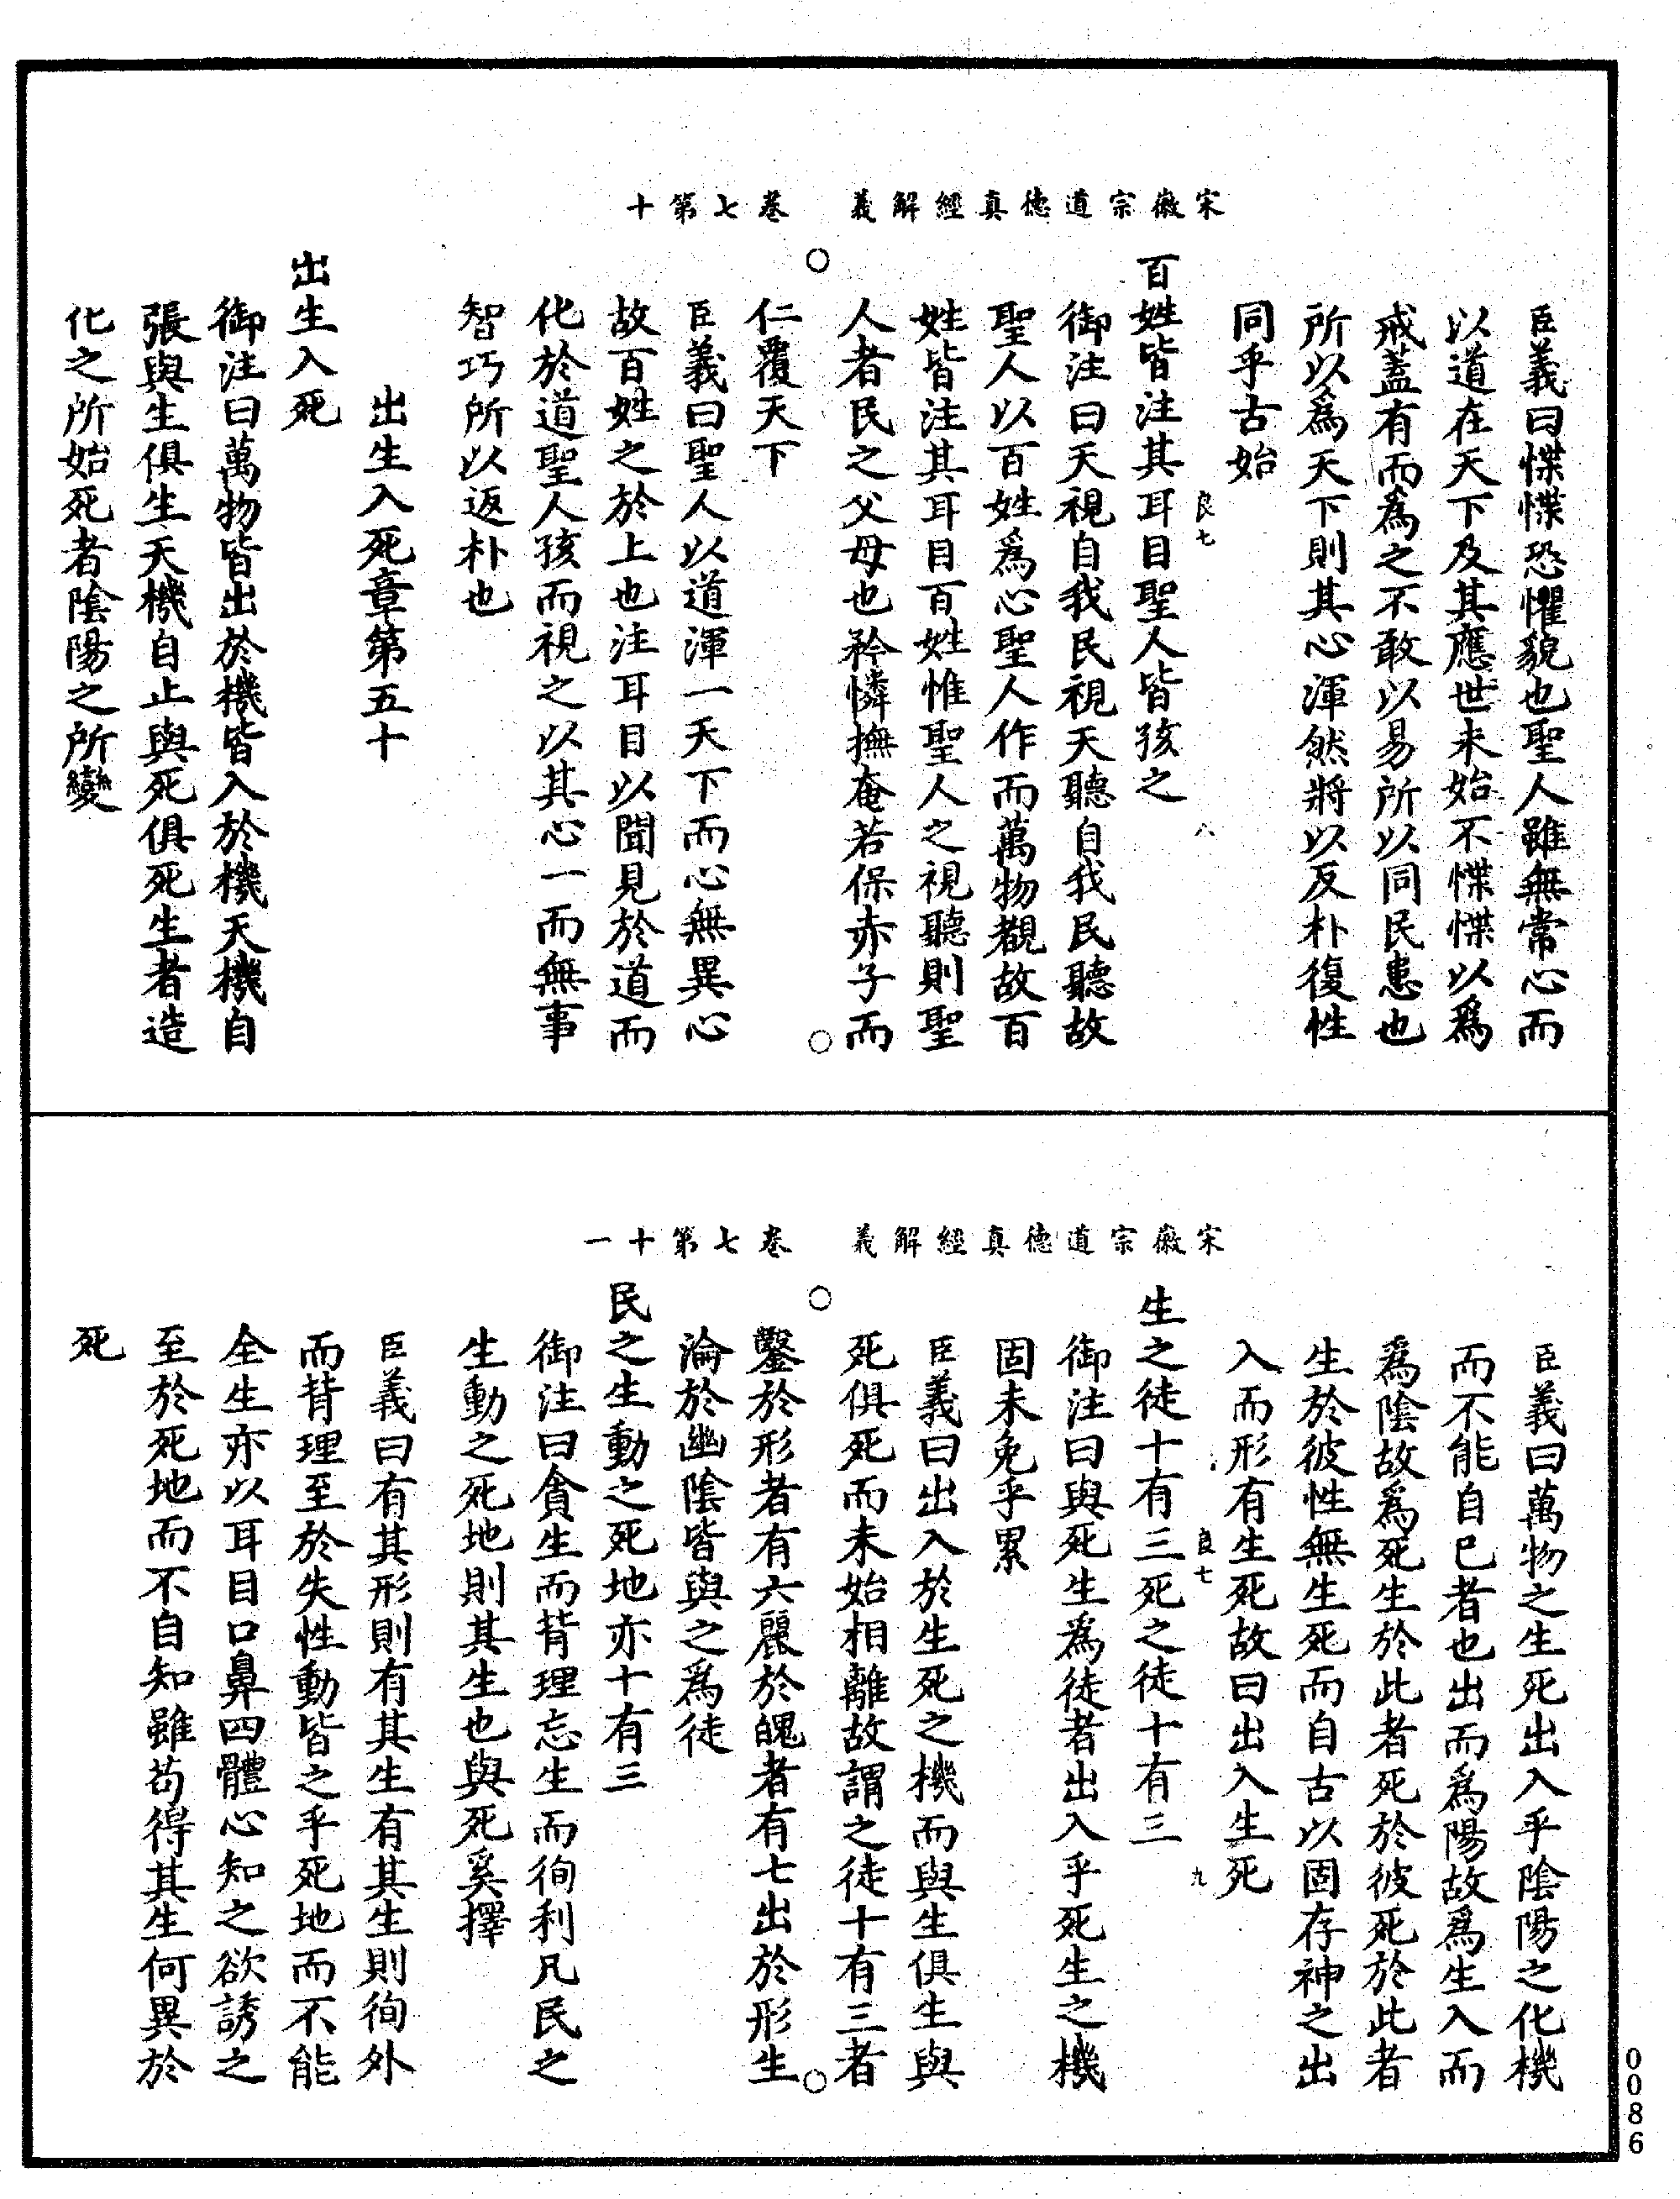 宋徽宗道德真經解義　卷七第十
臣義曰惵惵恐懼貌也聖人雖無常心而
以道在天下及其應世未始不惵惵以爲
戒蓋有而爲之不敢以易所以同民患也
所以爲天下則其心渾然將以反朴復性
同乎古始
良七　八
百姓皆注其耳目聖人皆孩之
御注曰天視自我民視天聽自我民聽故
聖人以百姓爲心聖人作而萬物覩故百
姓皆注其耳目百姓惟聖人之視聽則聖
人者民之父母也矜憐撫奄若保赤子而
仁覆天下
臣義曰聖人以道渾一天下而心無異心
故百姓之於上也注耳目以聞見於道而
化於道聖人孩而視之以其心一而無事
智巧所以返朴也
出生入死章第五十
出生入死
御注曰萬物皆出於機皆入於機天機自
張與生俱生天機自止與死俱死生者造
化之所始死者陰陽之所變
宋徽宗道德真經解義　卷七第十一
臣義曰萬物之生死出入乎陰陽之化機
而不能自巳者也出而爲陽故爲生入而
爲陰故爲死生於此者死於彼死於此者
生於彼性無生死而自古以固存神之出
入而形有生死故曰出入生死
良七　九
生之徒十有三死之徒十有三
御注曰與死生爲徒者出入乎死生之機
固未免乎累
臣義曰出入於生死之機而與生俱生與
死俱死而未始相離故謂之徒十有三者
鑿於形者有六麗於魄者有七出於形生
淪於幽陰皆與之爲徒
民之生動之死地亦十有三
御注曰貪生而背理忘生而徇利凡民之
生動之死地則其生也與死奚擇
臣義曰有其形則有其生有其生則徇外
而背理至於失性動皆之乎死地而不能
全生亦以耳目口鼻四體心知之欲誘之
至於死地而不自知雖苟得其生何異於
死
0086